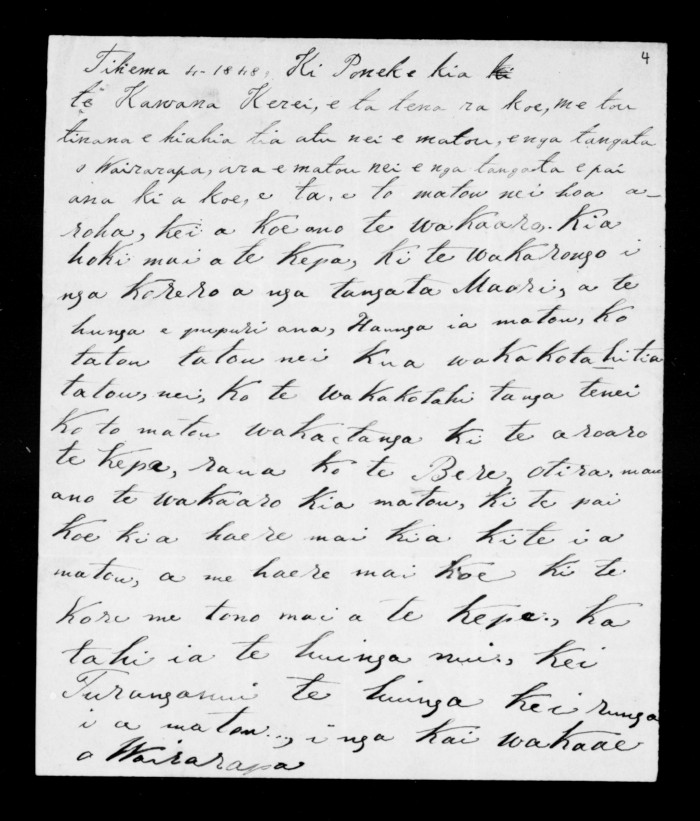 4
Tihema 4-1848, Ki Poneke kia
te Kawana Kerei, e ta tena ra koe, me tou
tinana e hiahia tia atu nei e matou, e nga tangata
o Wairarapa, ara e matou nei, e nga tangata e pai
ana ki a koe, e ta, e to matou nei hoa a-
roha, kei a koe ano te wakaaro. Kia
hoki mai a te Kepa, ki te wakarongo i
nga Korero a nga tangata Maari, a te
hunga e pupuri ana, Haunga ia matou, ko
tatou tatou nei kua wakakotahitia
tatou, nei, ko te wakakotahi tanga tenei
ko to matou wakaetanga ki te aroaro
te Kepa, raua ko te Bere, otira, mau
ano te wakaaro kia matou, ki te pai
koe kia haere mai kia kite i a
matou, a me haere mai koe ki te
kore me tono mai a te Kepe, ka
tahi ia te huinga nui, kei
Turanganui te huinga kei runga
i a matou.., i nga kai wakaae
o Wairarapa